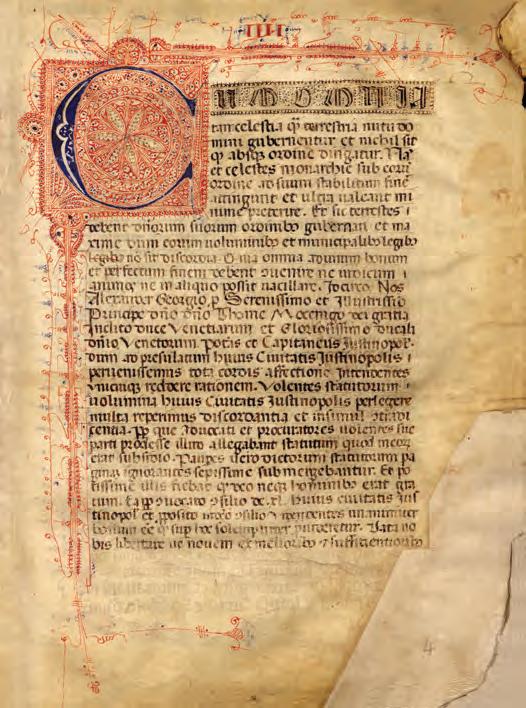 IIII
CUM OMNIA
tam celestia qȝ terrestria nutu do
mini gubernentur et nichil sit
qȝ absqȝ ordine dirigatur. Na
et celestes monarchie sub eorū
ordine ad suum stabilitum finē
attingunt et ultra valeant mi
nime preterire. Et sic terrestes i
debent dnorum suorum ordinibȝ gubernari et ma
xime dum eorum voluminibȝ et municipalibȝ legibȝ
legibȝ nō sit discordia omnia ad unum bonum
et perfectum finem debent ne iudicum
animqȝ ne in aliquo possit vacillare. Idcirco Nos
Alexander Georgio, p Serenissimo et Illustrissio
Principe dnō dnō Thome Mocenigo dei gratia
inclito duce Venetiarum et Gloriosissimo ducali
dnīo Venetorum Potās et Capitaneus Justinopol
dum ad presulatum huius Civitatis Justinopolis
pervenissemus tota cordis affectione Intendentes
unicuiqȝ reddere rationem. Volentes statutorum
volumina huius Civitatis Justinopolis perlegere
multa reperimus discordantia et insimul
centia. pp que Advocati et procuratores volentes sue
parti prodesse illud allegabant statutum quod
erat subsidio. Paupes vero dictorum statutorum pa
ginas ignorantes sepissime submergebantur. Et po
tissime illis fiebat qȝ deo neqȝ hominibȝ erat gra
tum. Ea pp 9vocato 9silio de .xl. huius civitatis Jus
tinopol et pposito 9silio unanimiter
bonum eē qȝ sup hoc solempniter Data no
bis libertate de novem ex melioribȝ sufficientioribȝ
4